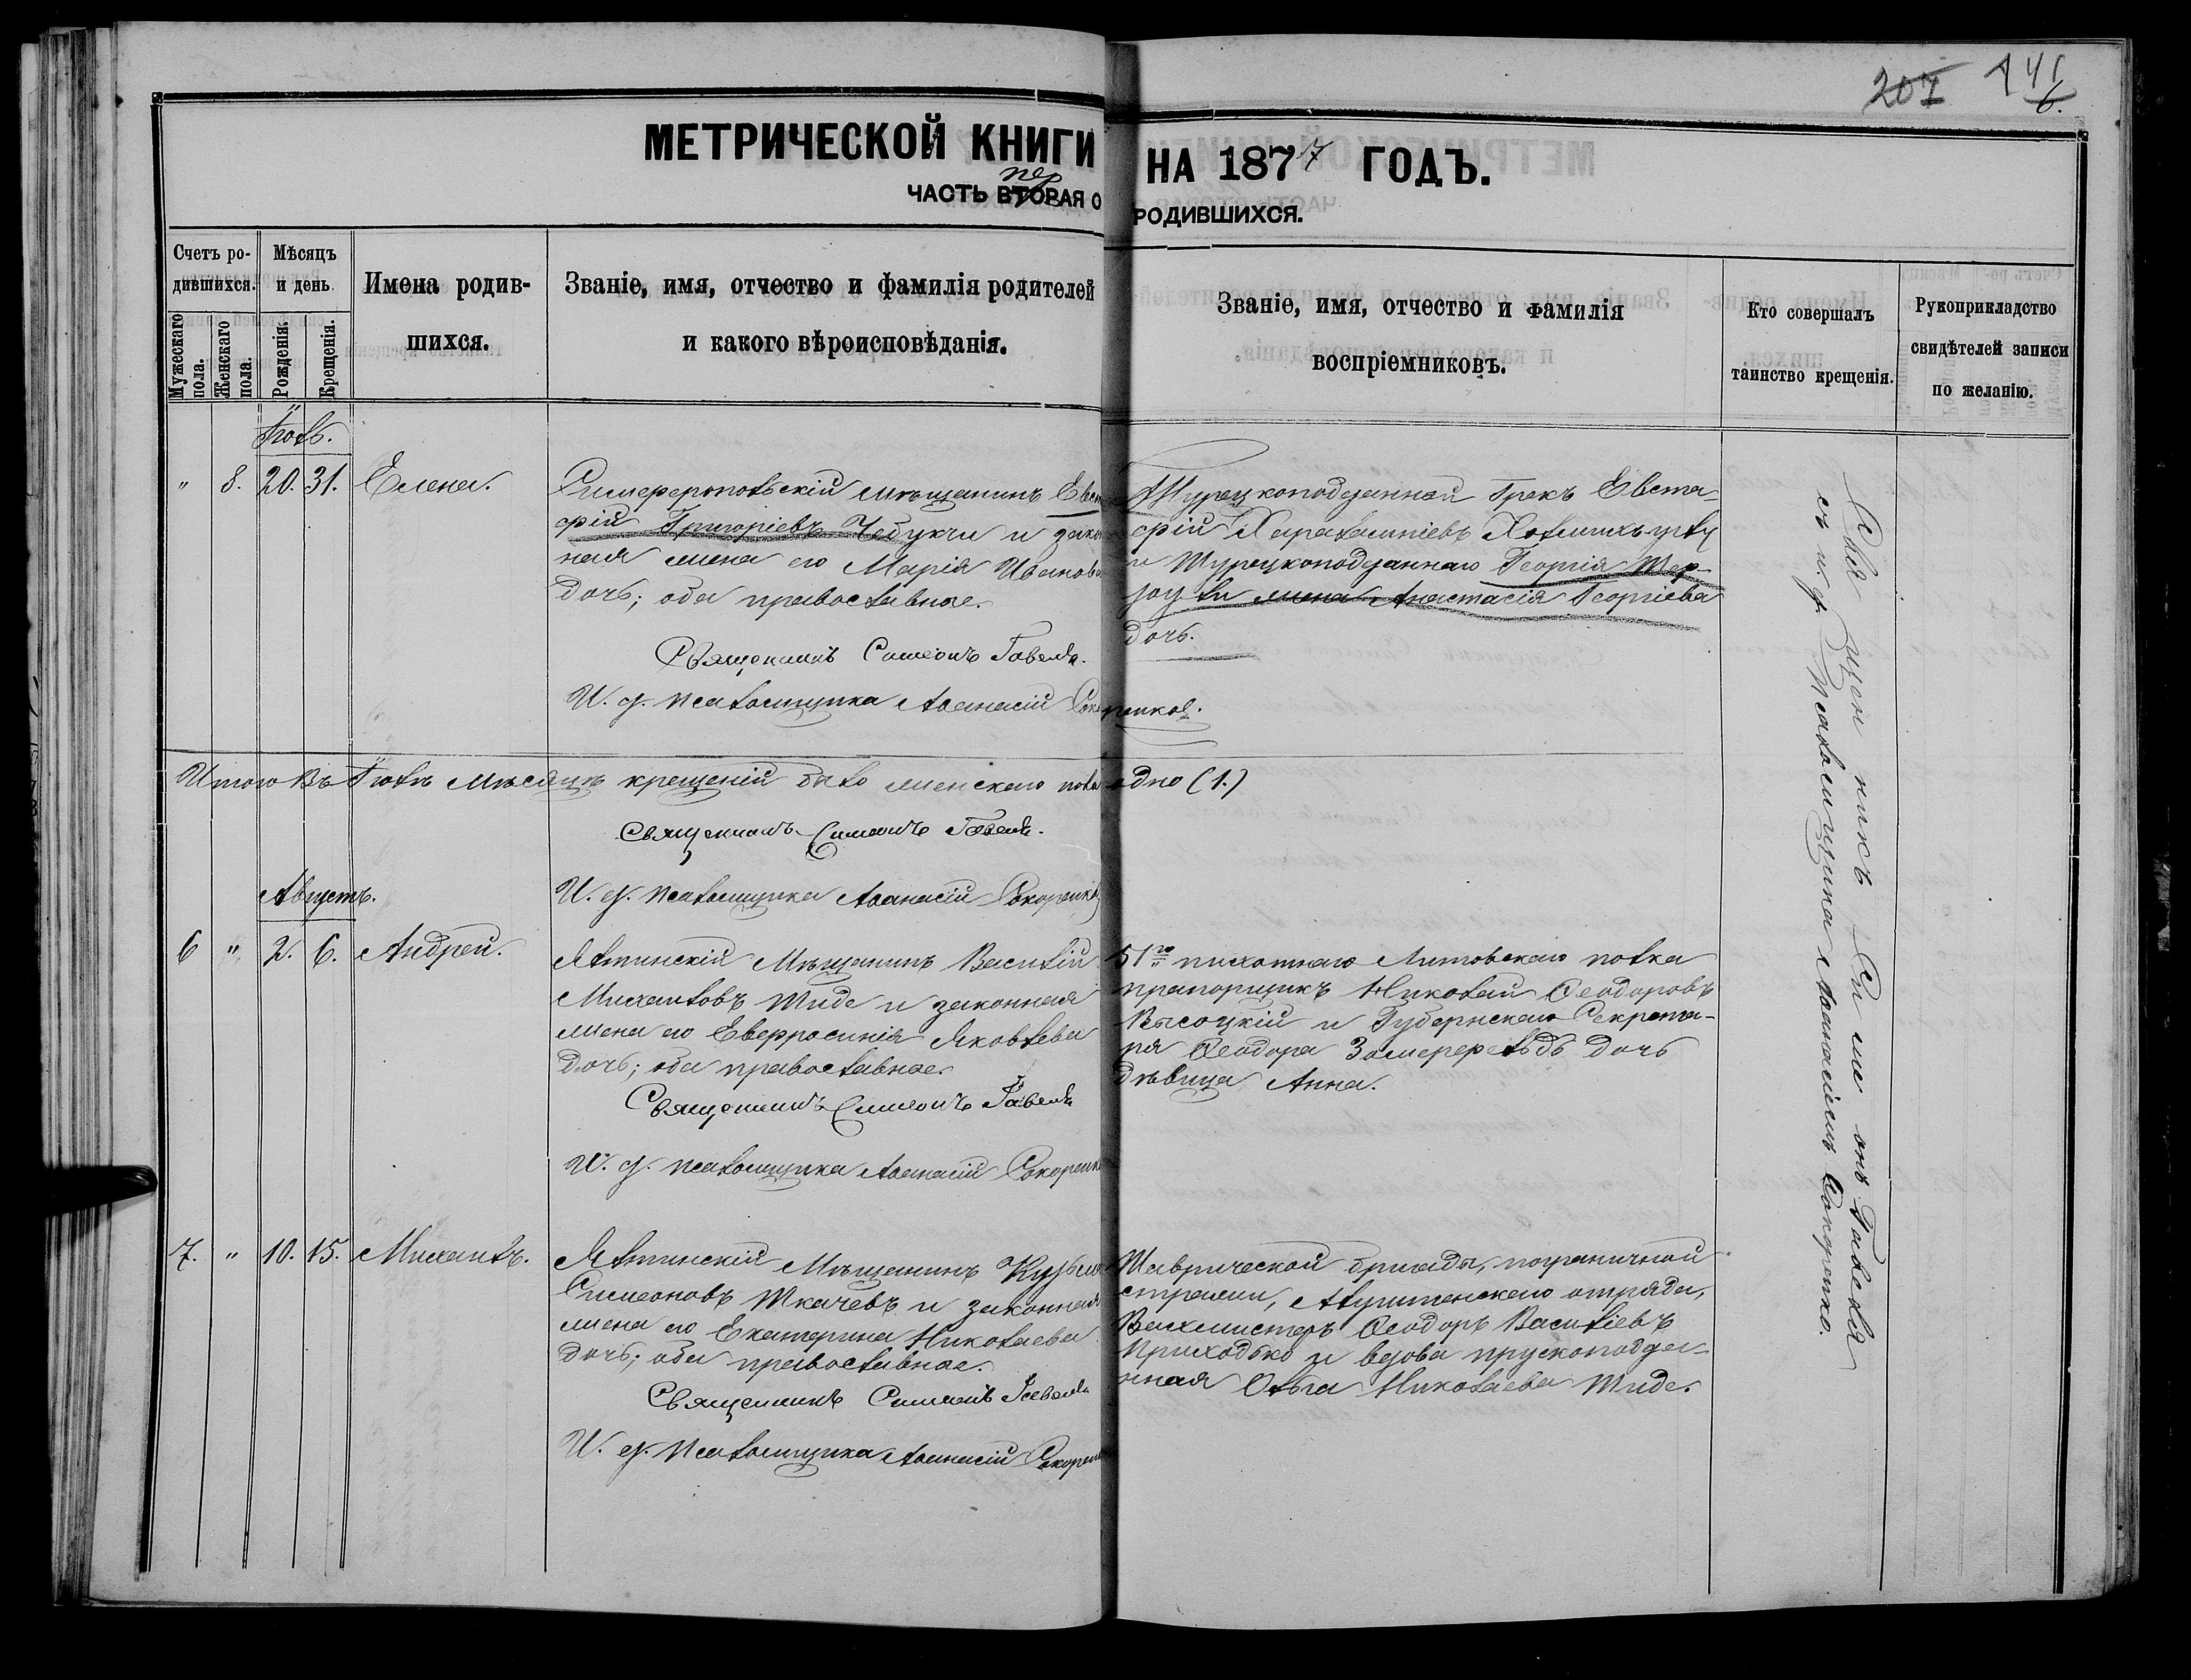 207 141
6.
МЕТРИЧЕСКОЙ КНИГИ НА 1877 ГОДЪ.
пер
ЧАСТЬ ВТОРАЯ О РОДИВШИХСЯ.
Счетъ родившихся.
Мужескаго пола.
Женскаго пола.
Мѣсяцъ и день.
Рожденія.
Крещенія.
Имена родив-
шихся.
Званіе, имя, отчество и фамилія родителей
и какого вѣроисповѣданія.
Званіе, имя, отчество и фамилія
воспріемниковъ.
Кто совершалъ
таинство крещенія.
Рукоприкладство
свидѣтелей записи
по желанію.
Іюль.
" 8. 20. 31. Елена.
Симферопольскій мѣщанинъ Евста
фій Григоріевъ Чебукчи и закон
ная жена его Марія Иванова
дочь; оба православные.
Священникъ Симеонъ Гавеля.
И. д. псаломщика Аѳанасій Сокоренко.
Турецкоподданный Грекъ Евста-
фій Харалампіевъ
и Турецкоподданнаго Георгія Тер-
жена Анастасія Георгіева
дочь.
Итого въ Іюлѣ мѣсяцѣ крещеній было женскаго пола одно (1.)
Священникъ Симеонъ Гавеля.
И. д. псаломщика Аѳанасій Сокоренко
Августъ.
6 " 2. 6. Андрей.
Ялтинскій Мѣщанинъ Василій
Михаиловъ Тиде и законная
жена его Евфросинія Яковлева
дочь; оба православные.
Священникъ Симеонъ Гавеля
И. д. псаломщика Аѳанасій Сокоренко
51го пихотнаго Литовскаго полка
прапорщикъ Николай Ѳеодоровъ
Высоцкій и Губернскаго Секрета-
ря Ѳеодора дочь
дѣвица Анна.
7. " 10. 15. Михаилъ.
Ялтинскій Мѣщанинъ Кузьма
Симеоновъ Ткачевъ и законная
жена его Екатерина Николаева
дочь; оба православные.
Священникъ Симеонъ Гавеля
И. д. Псаломщика Аѳанасій Сокоренко
Таврической бригады, пограничной
стражи, Алуштенскаго отряда,
Вахмистръ Ѳеодоръ Василіевъ
Приходько и вдова прускоподда-
нная Ольга Николаева Тиде.
Священникъ Симеонъ Гавеля
съ и. д. Псаломщика Аѳанасіемъ Сокоренко.